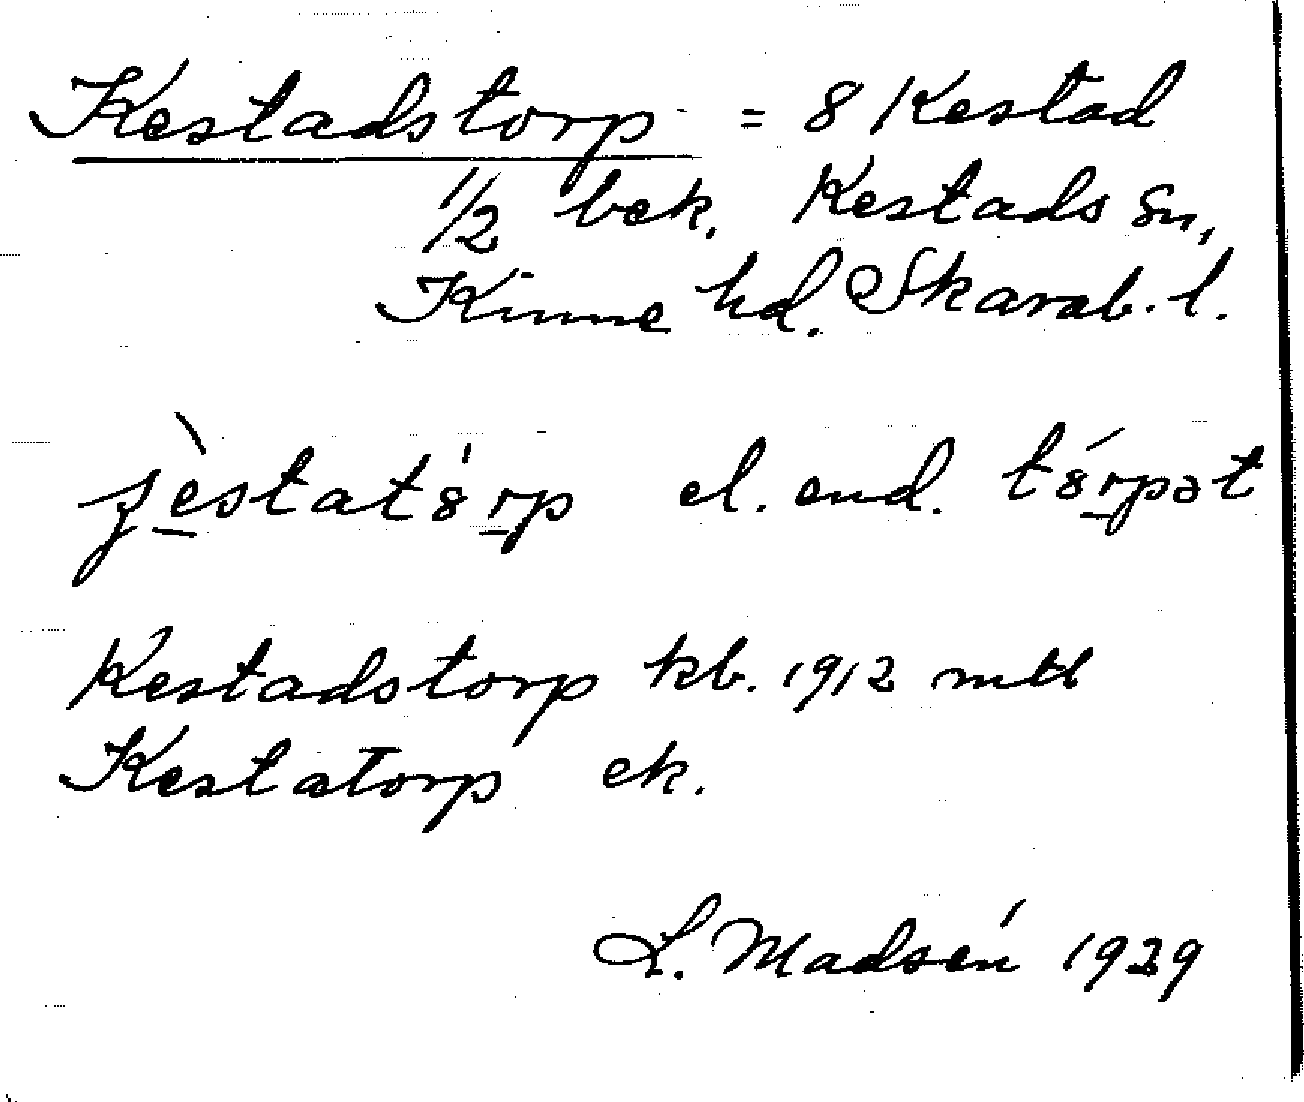 Kestadstorp = 8 Kestad
1/2 bek. Kestads sn,
Kinne hd. Skarab. l.
el. end.
Kestadstorp kb. 1912 mtl
Kestatorp ek.
L. Madsén 1929